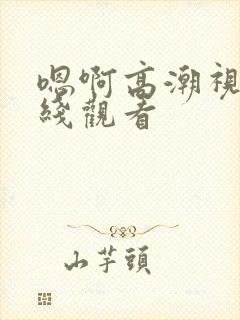 嗯啊高潮視
綫觀看
山芋頭